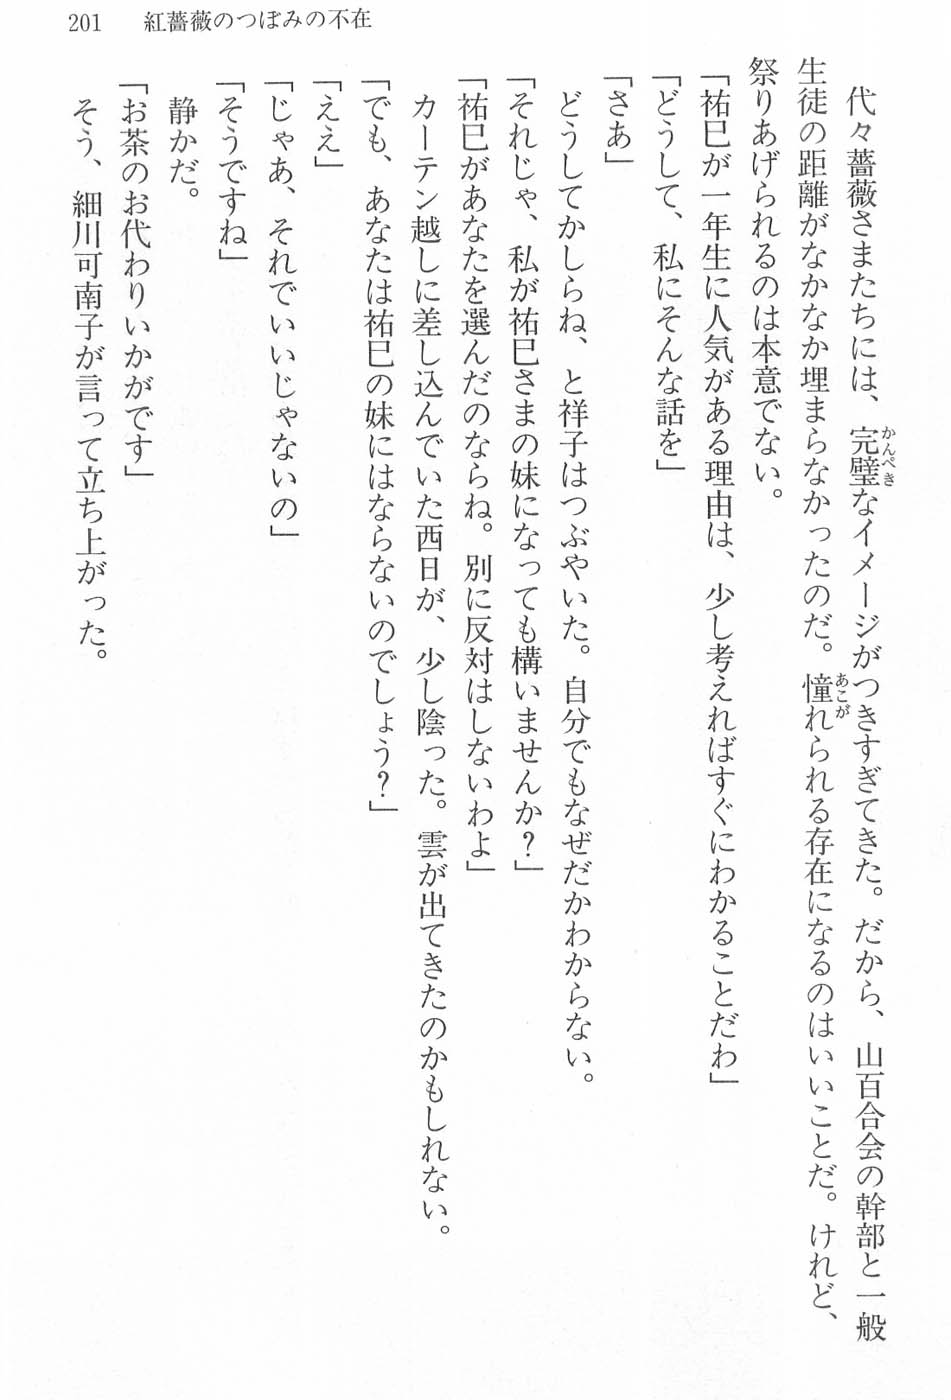 201　紅薔薇のつぼみの不在
　代々薔薇さまたちには、完璧なイメージがつきすぎてきた。だから、山百合会の幹部と一般
生徒の距離がなかなか埋まらなかったのだ。憧れられる存在になるのはいいことだ。けれど、
祭りあげられるのは本意でない。
「祐巳が一年生に人気がある理由は、少し考えればすぐにわかることだわ」
「どうして、私にそんな話を」
「さあ」
　どうしてかしらね、と祥子はつぶやいた。自分でもなぜだかわからない。
「それじゃ、私が祐巳さまの妹になっても構いませんか？」
「祐巳があなたを選んだのならね。別に反対はしないわよ」
　カーテン越しに差し込んでいた西日が、少し陰った。雲が出てきたのかもしれない。
「でも、あなたは祐巳の妹にはならないのでしょう？」
「ええ」
「じゃあ、それでいいじゃないの」
「そうですね」
　静かだ。
「お茶のお代わりいかがです」
　そう、細川可南子が言って立ち上がった。